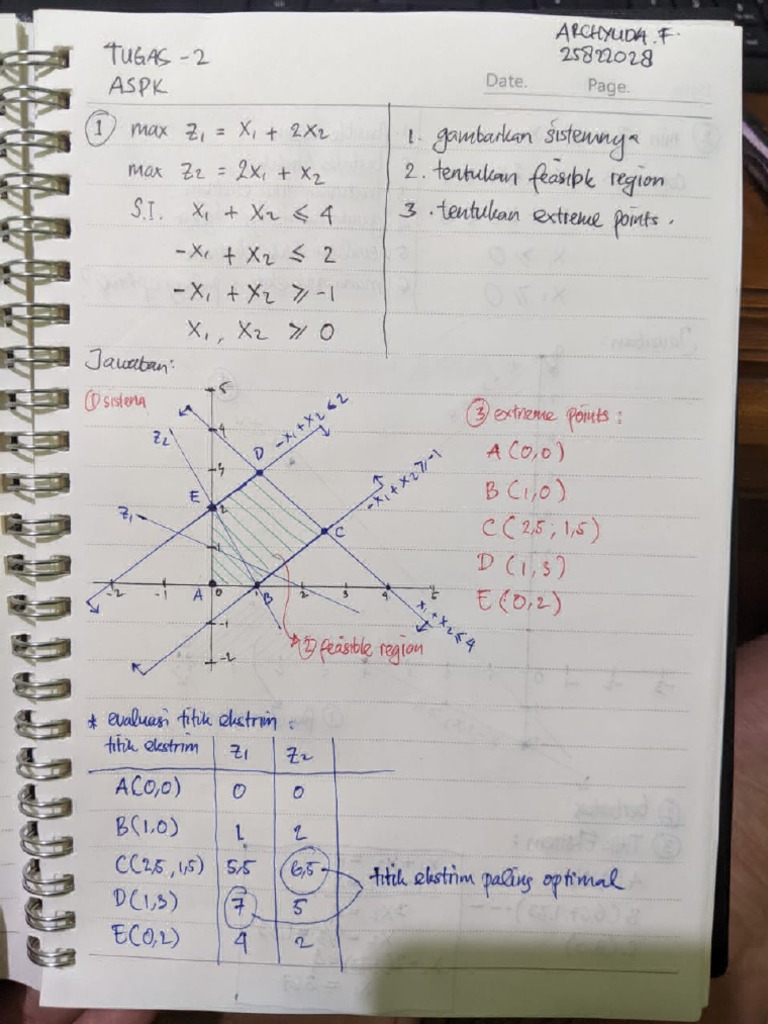 ARCHYUDA.F.
25822028
TUGAS -2
ASPK
Date. Page.
① max Z₁ = X₁ + 2X₂
max Z₂ = 2X₁ + X₂
S.T. X₁ + X₂ ≤ 4
-X₁ + X₂ ≤ 2
-X₁ + X₂ ≥ -1
X₁, X₂ ≥ 0
1. gambarkan sistemnya
2. tentukan feasible region
3. tentukan extreme points.
Jawaban:
① sistem
5
4
3
2
1
-2 -1 0 1 2 3 4 5
-1
-2
Z₂
Z₁
A
B
C
D
E
-X₁ + X₂ ≤ 2
-X₁ + X₂ ≥ -1
X₁ + X₂ ≤ 4
② feasible region
③ extreme points:
A (0,0)
B (1,0)
C (2,5 ; 1,5)
D (1,3)
E (0,2)
* evaluasi titik ekstrim :
titik ekstrim Z₁ Z₂
A(0,0) 0 0
B(1,0) 1 2
C(2,5, 1,5) 5,5 6,5
D(1,3) 7 5
E(0,2) 4 2
titik ekstrim paling optimal